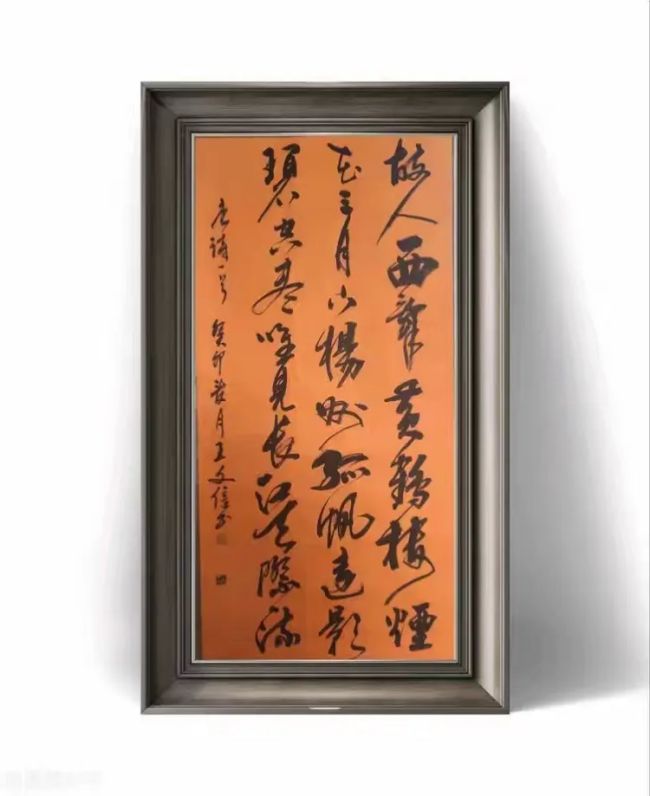 故人西辞黄鶴楼煙
花三月下楊州孤帆遠影
碧空尽唯見長江天際流
唐詩一首 癸卯 月王文 书